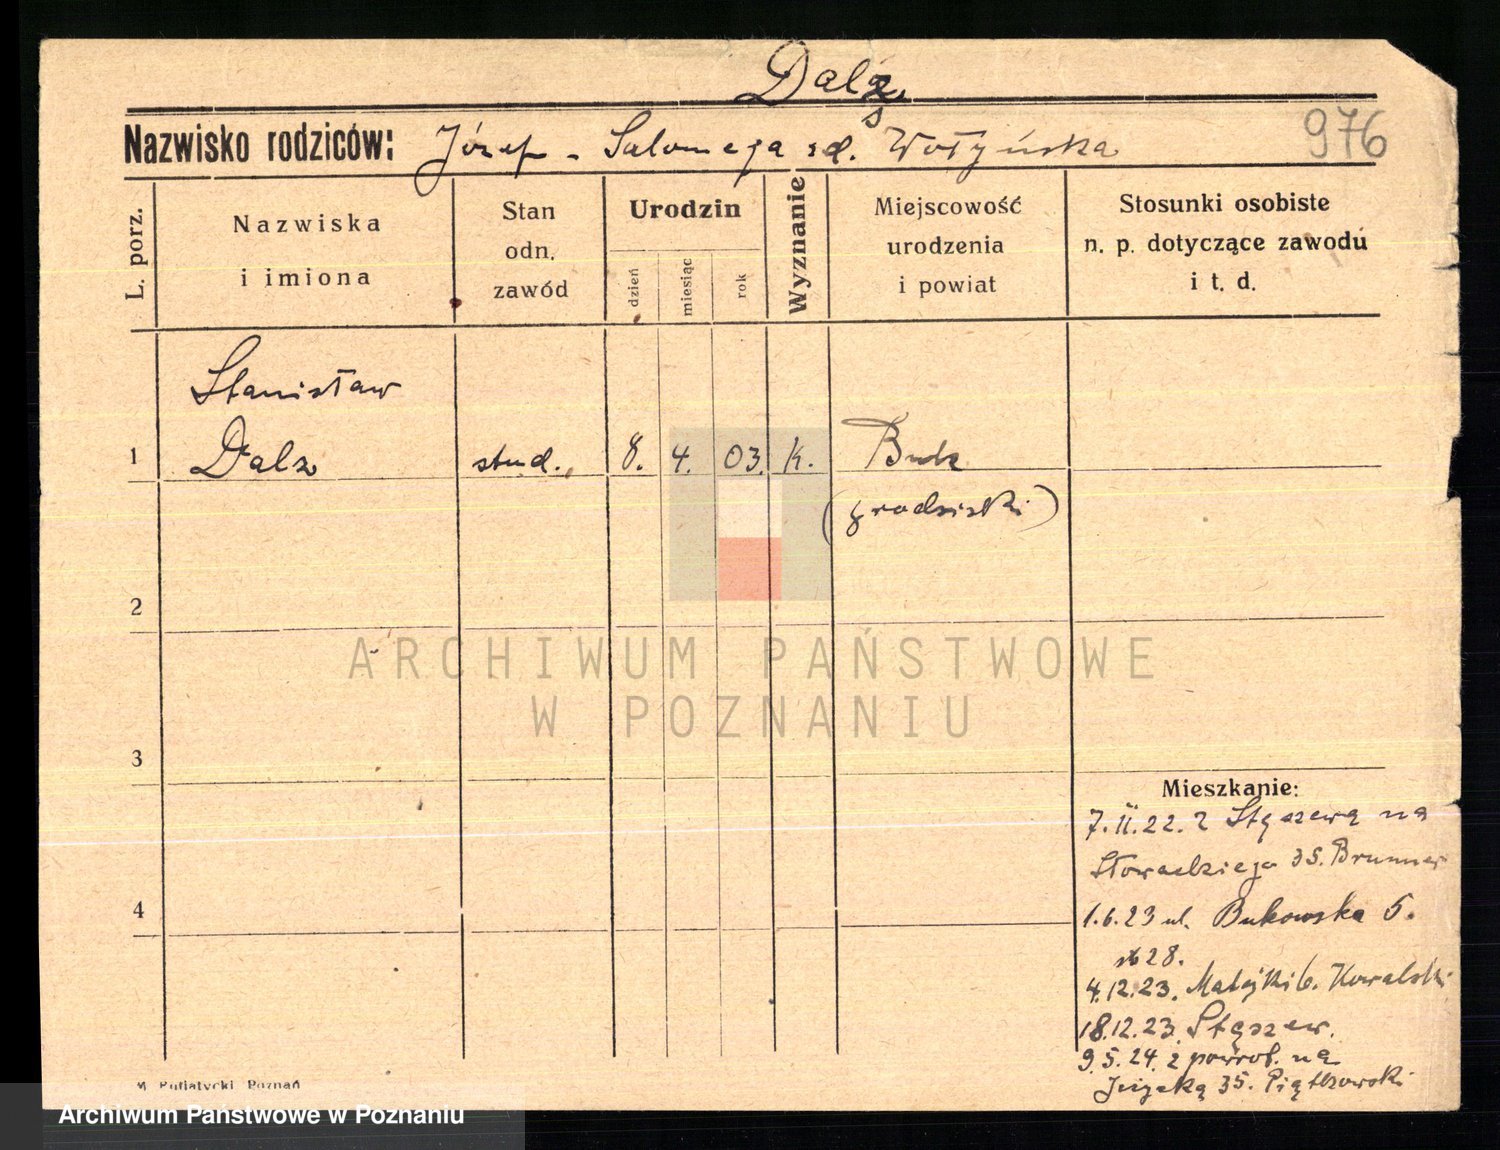 Dalz
Nazwisko rodziców: Józef - Salomeja rd. Wołyńska
976
L. porz.
Nazwiska
i imiona
Stan
odn.
zawód
Urodzin
dzień
miesiąc
rok
Wyznanie
Miejscowość
urodzenia
i powiat
Stosunki osobiste
n. p. dotyczące zawodu
i t. d.
Stanisław
1 Dalz stud. 8. 4. 03. k. Buk
(grodziski)
2
ARCHIWUM PAŃSTWOWE
W POZNANIU
3
Mieszkanie:
7.II.22. z Stęszewa na
35.
4
1.6.23 ul. Bukowska 5.
28.
4.12.23. Matejki 6. Kowalski
18.12.23. Stęszew.
9.5.24. z powrot. na
35. Piątkowski
M. Putiatycki Poznań
Archiwum Państwowe w Poznaniu